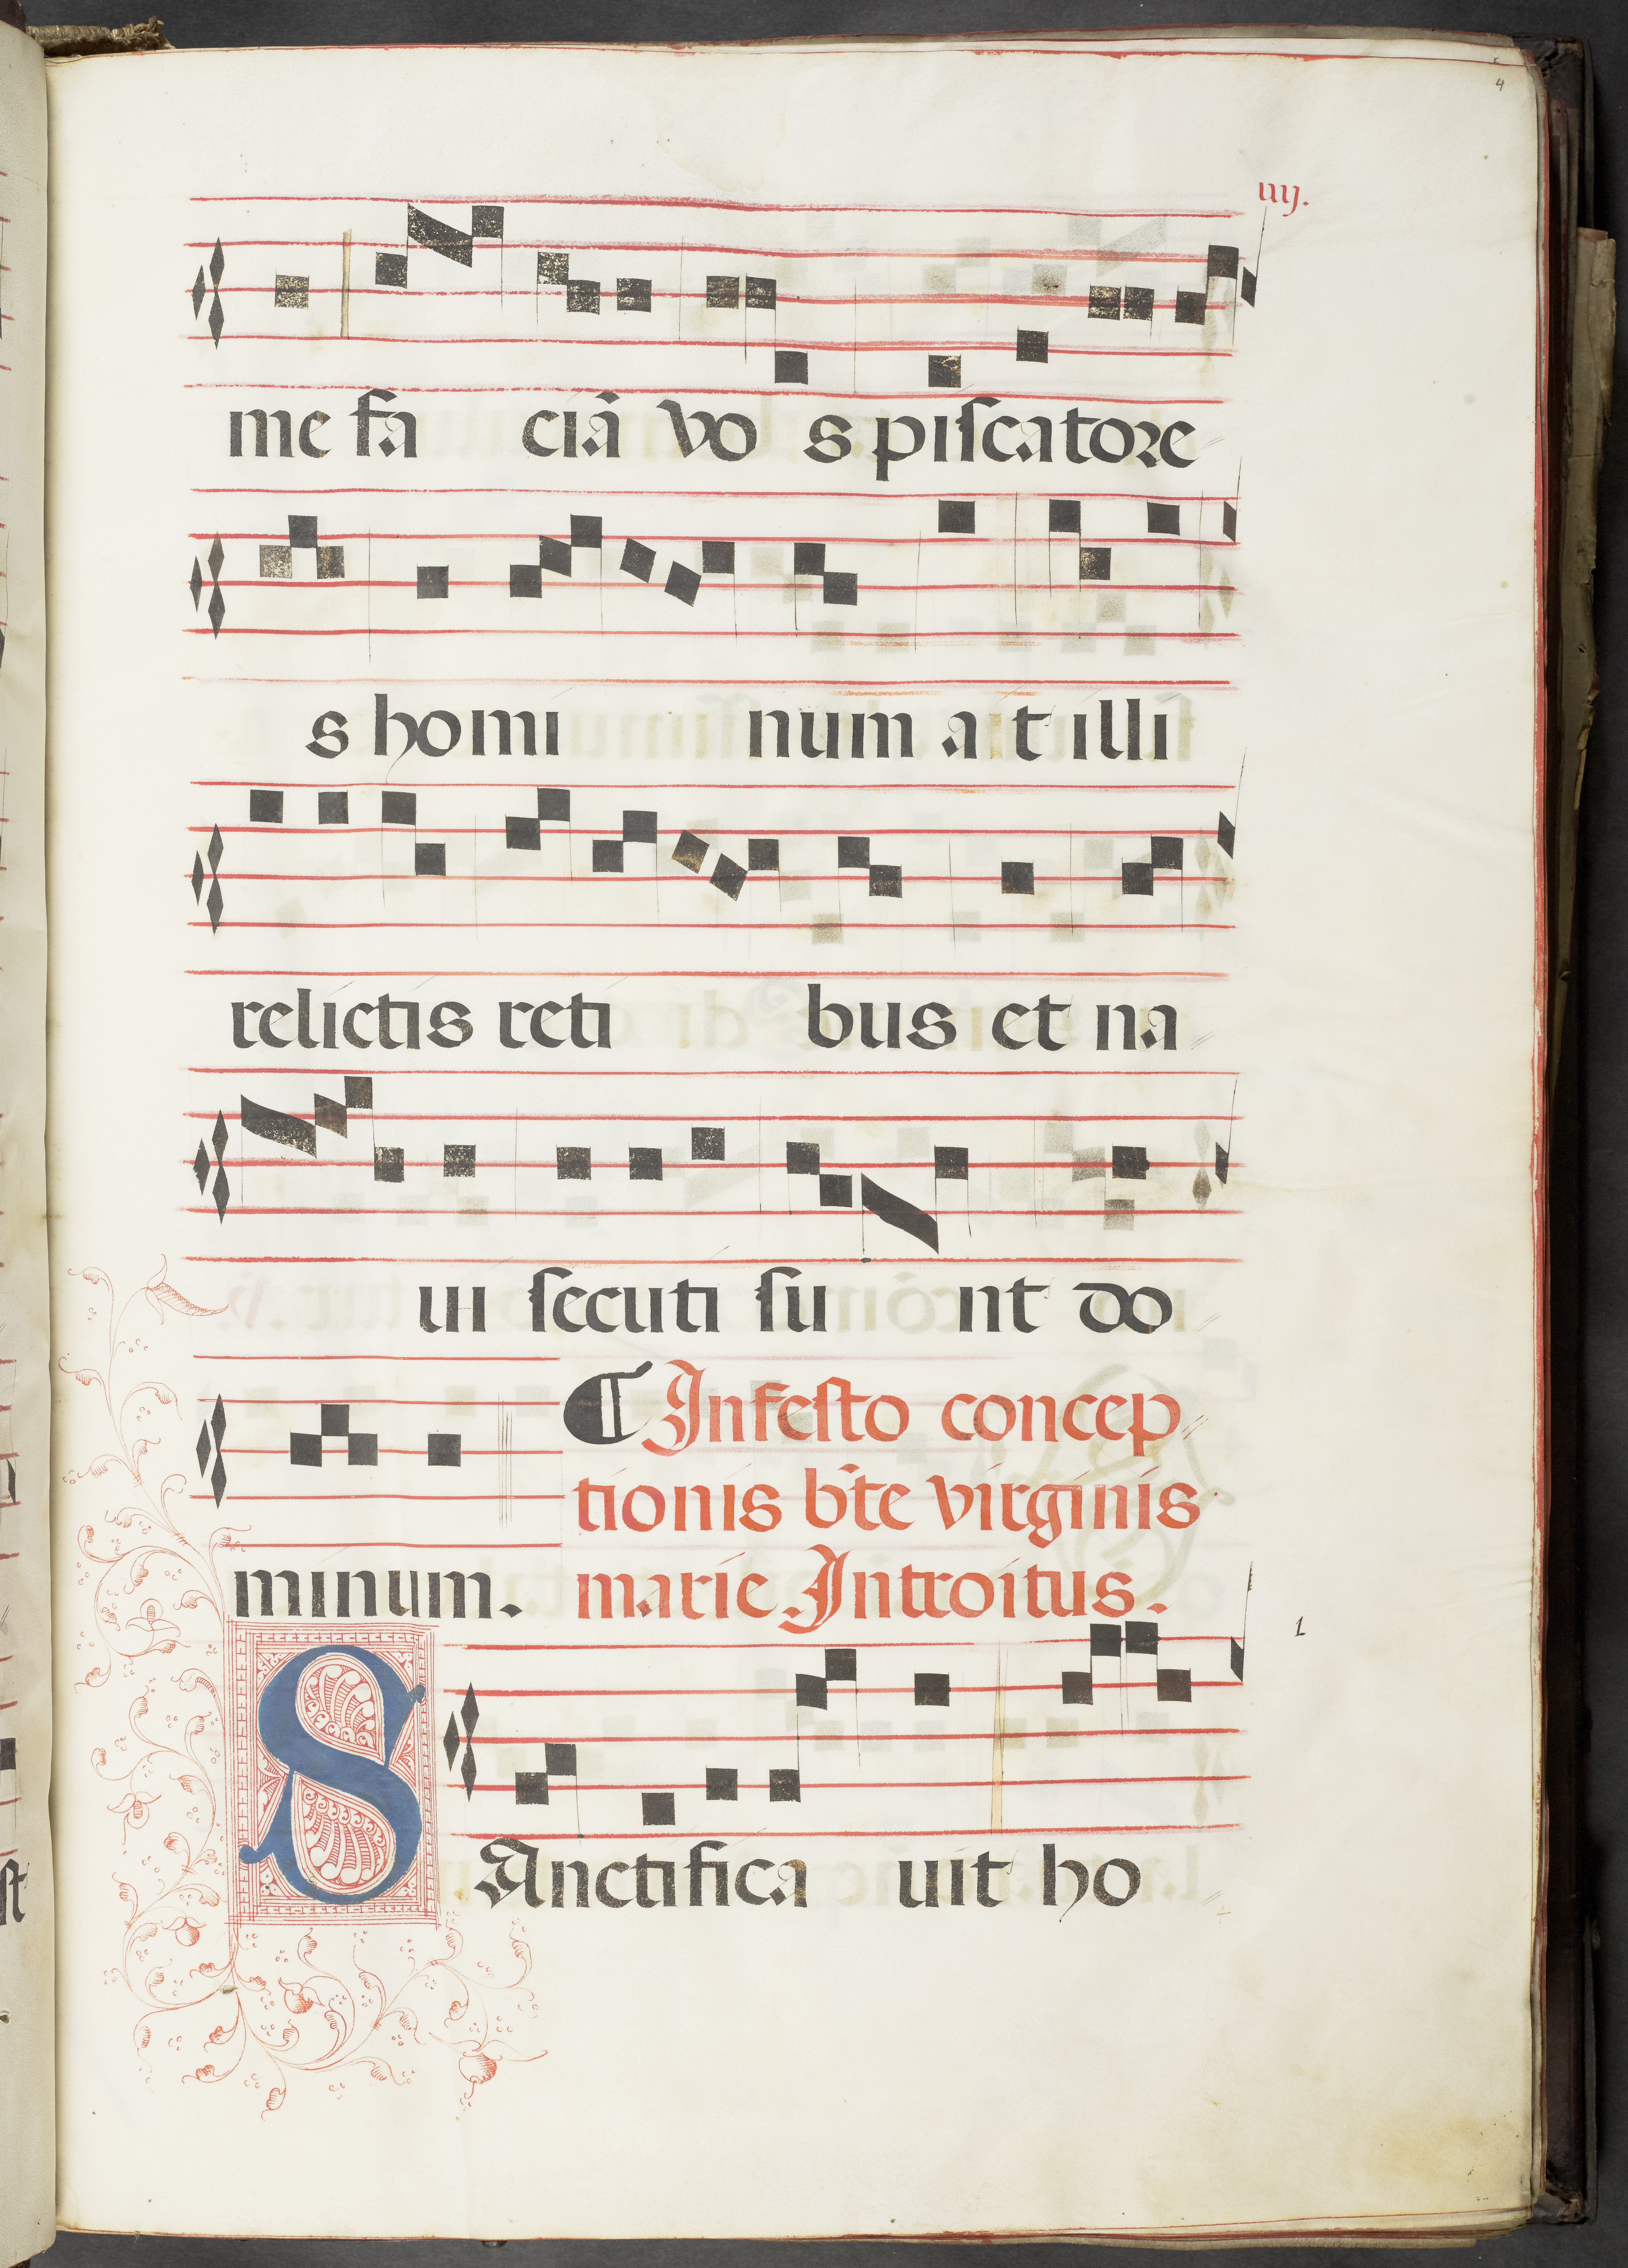 4
iiij.
me fa ciā vo s piscatore
s homi num a it illi
relictis reti bus et na
ui secuti su nt do
¶ In festo concep
tionis bt̄e virginis
minum. marie Introitus.
1
SAnctifica uit ho